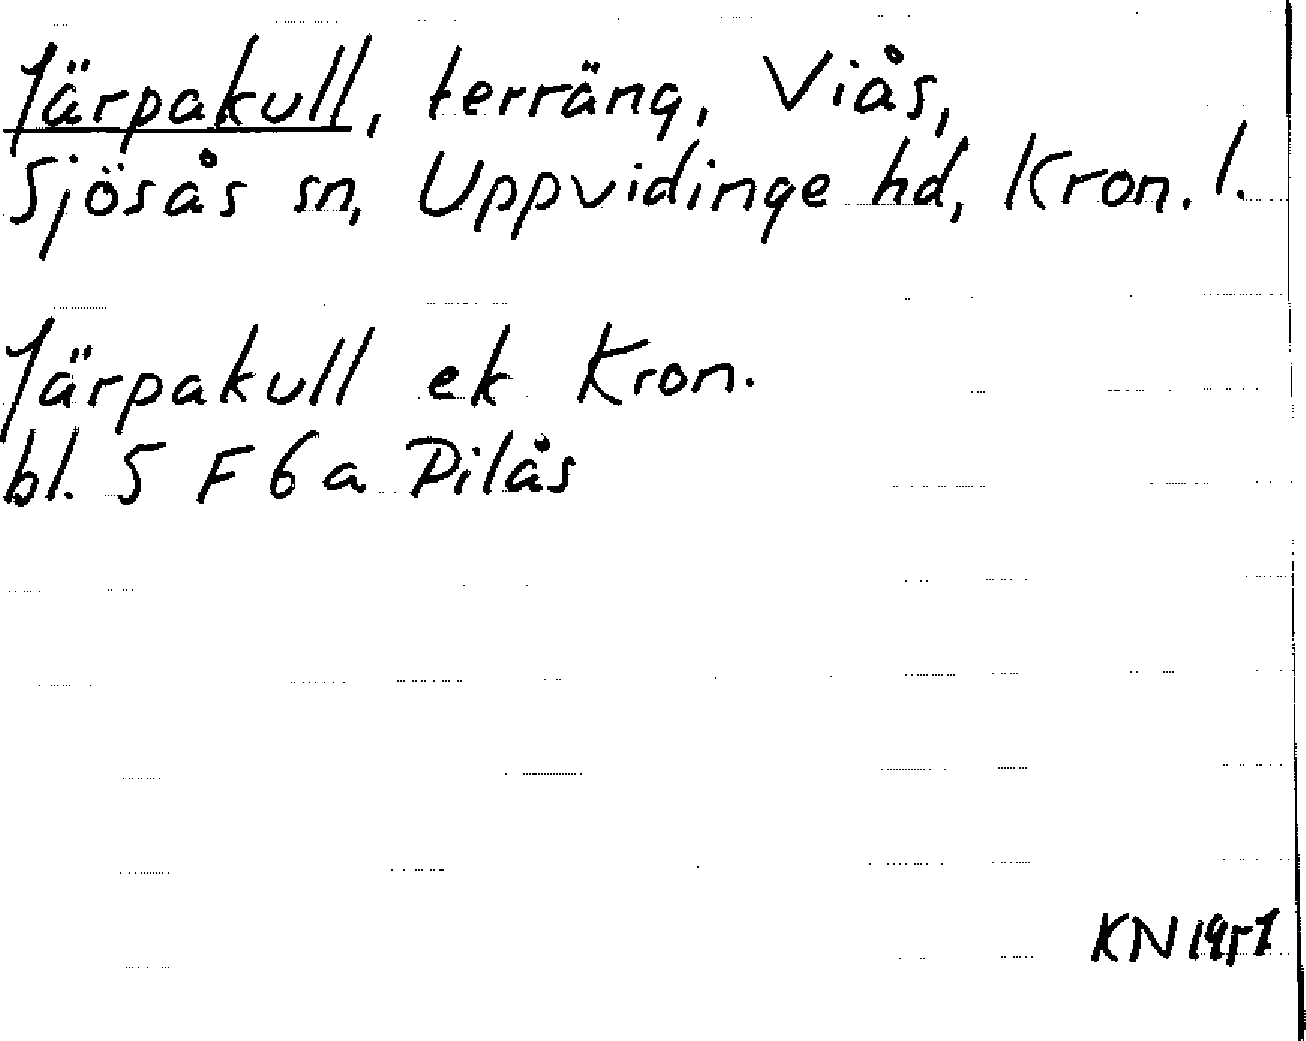 Järpakull, terräng, Viås,
Sjösås sn, Uppvidinge hd, Kron. l.
Järpakull ek Kron.
bl. 5 F 6 a Dilås
KN 1951